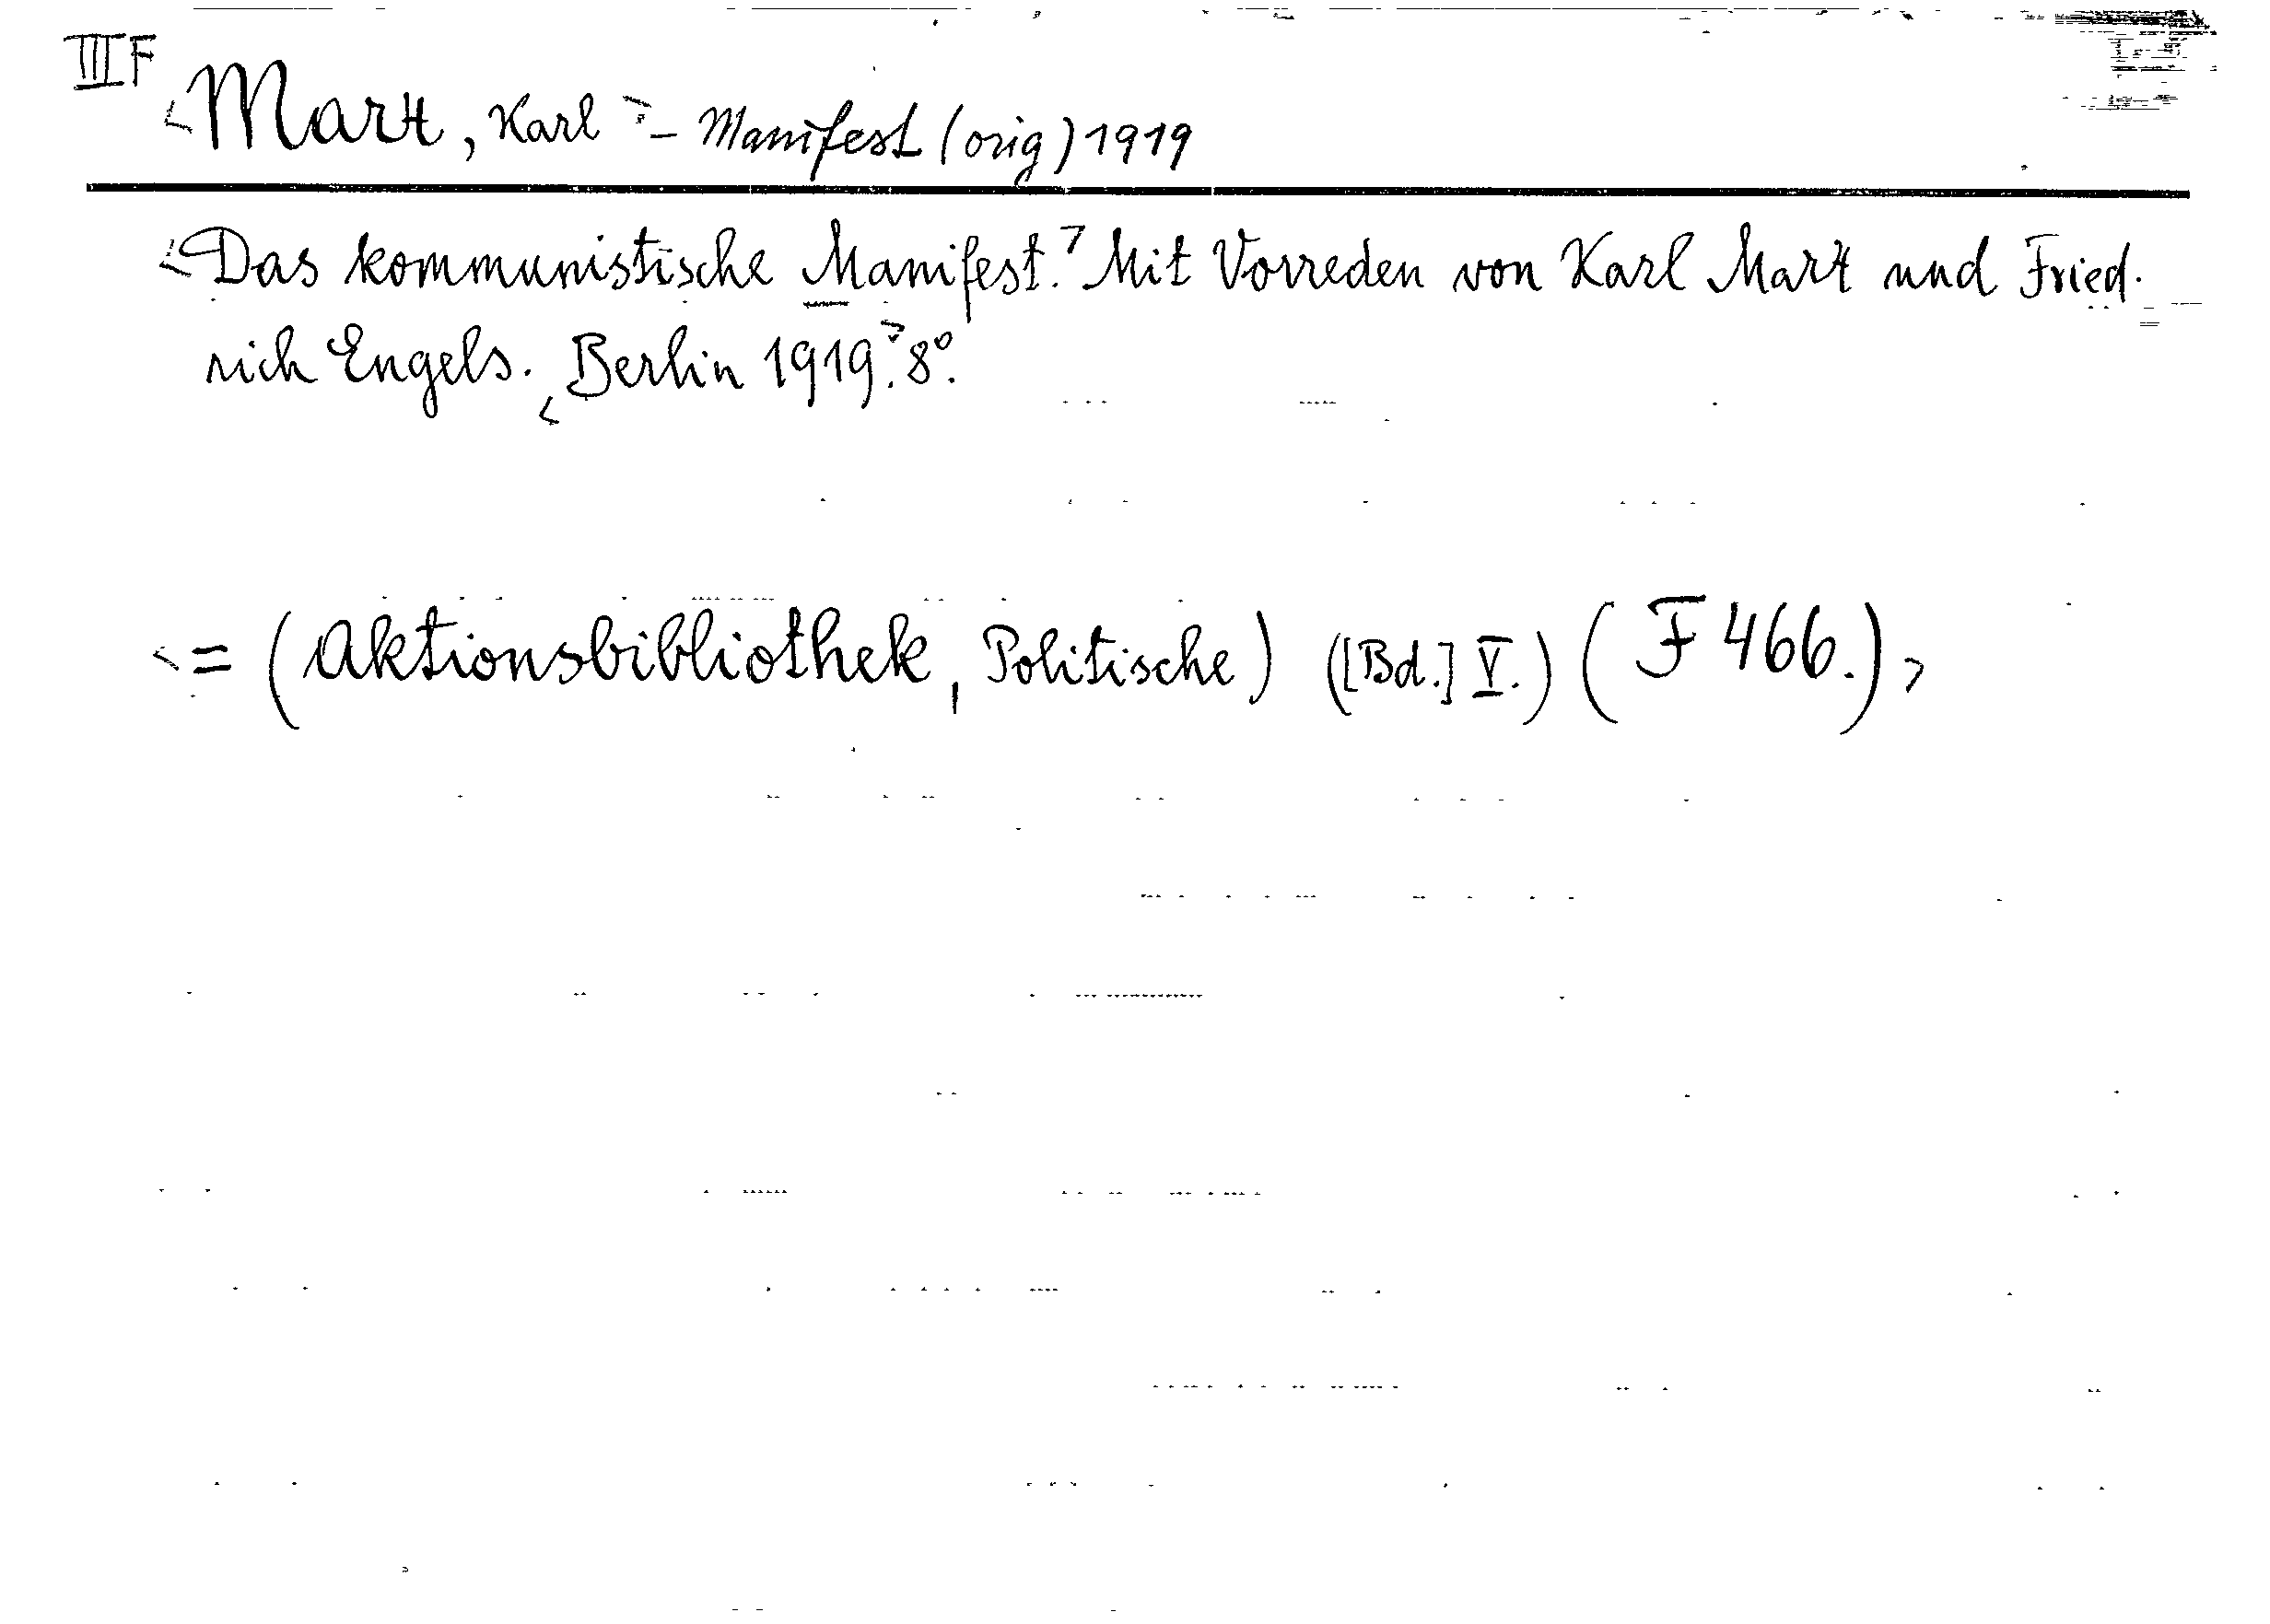 III F
<Marx, Karl> – Manifest (orig) 1919
<Das kommunistische Manifest.> Mit Vorreden von Karl Marx und Fried-
rich Engels. <Berlin 1919.> 8°.
<= (Aktionsbibliothek, Politische) ([Bd.] V.) (F 466.)>